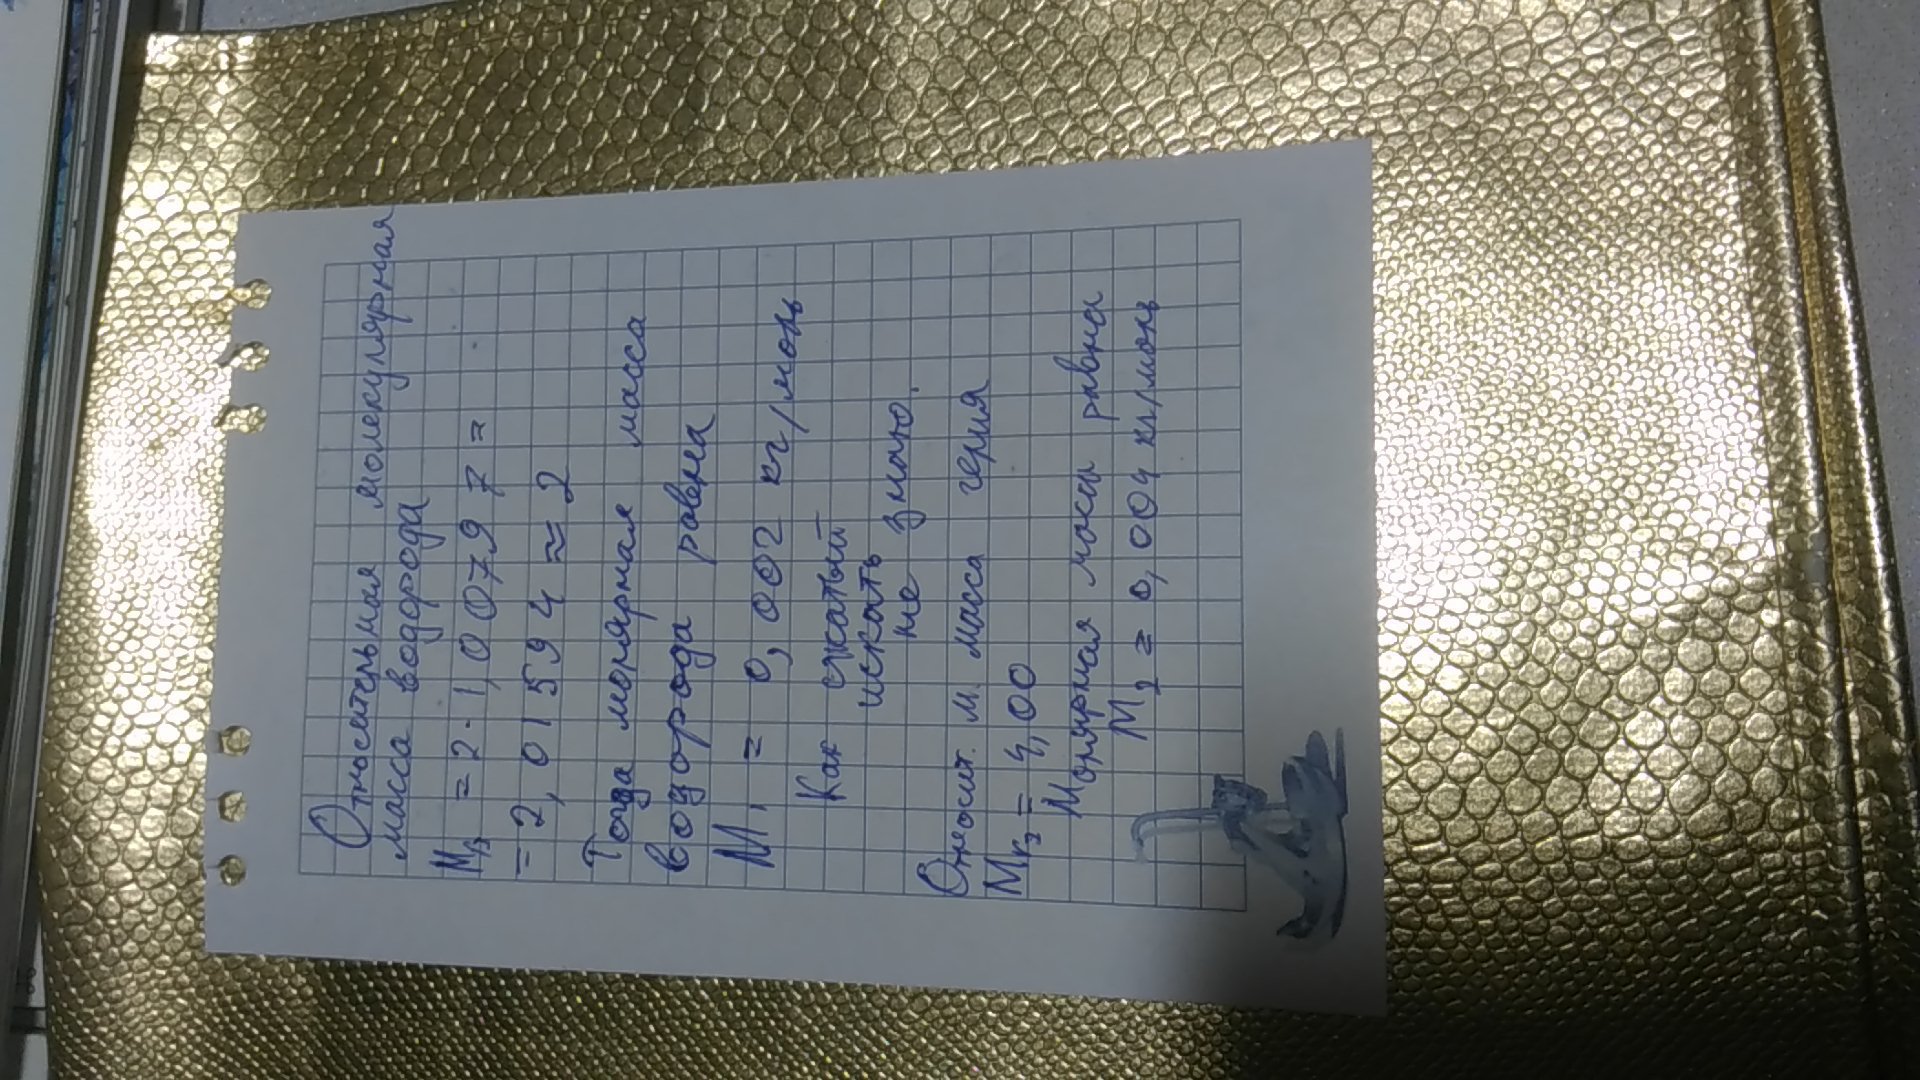 Относительная молекулярная
масса водорода
Mr₁ = 2·1,00797 =
= 2,01594 ≈ 2
Тогда молярная масса
водорода равна
M₁ = 0,002 кг/моль
Как сжатый
искать
не знаю.
Относит. м. масса гелия
Mr₂ = 4,00
Молярная масса равна
M₂ = 0,004 кг/моль